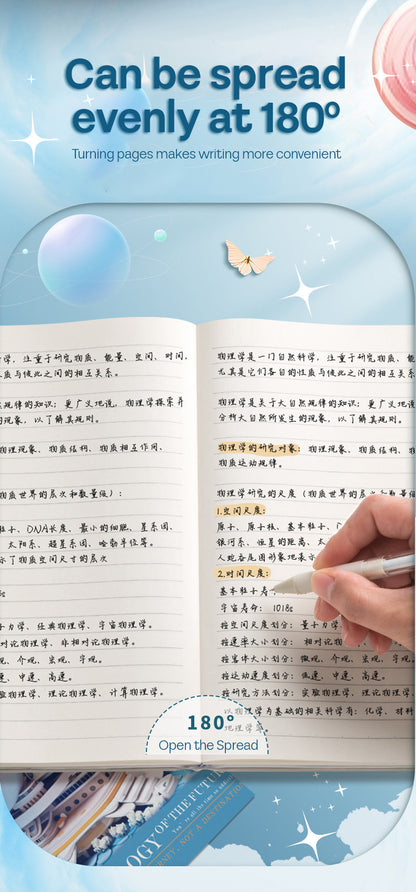 Can be spread
evenly at 180°
Turning pages makes writing more convenient
学，注重于研究物质、能量、空间、时间，
质与彼此之间的相互关系。
规律的知识；更广义地说，物理学探索并
现象，以了解其规则。
物理现象、物质结构、物质相互作用、
物质世界的层次和数量级）：
粒子、DNA长度、最小的细胞、星系团、
太阳系、超星系团、哈勃半径等。
示了物质空间尺寸的层次
力学、经典物理学、宇宙物理学。
对论物理学、非相对论物理学。
观、介观、宏观、宇观。
速、中速、高速。
物理学、理论物理学、计算物理学。
物理学是一门自然科学，注重于研究物质、能
尤其是它们各自的性质与彼此之间的相互关系
物理学是关于大自然规律的知识；更广义地说
分析大自然所发生的现象，以了解其规则。
物理学的研究对象：物理现象、物质结构、物
物质运动规律。
物理学研究的尺度（物质世界的层次和数量级
1.空间尺度：
原子、原子核、基本粒子、
银河系、恒星的距离、太
人蛇吞尾图形象地表示
2.时间尺度：
基本粒子寿
宇宙寿命：1018s
按空间尺度划分：量子力学
按速率大小划分：相对论物
按客体大小划分：微观、介观、宏观、
按运动速度划分：低速、中速、高速。
按研究方法划分：实验物理学、理论物理学、
以物理学为基础的相关科学有：化学、材料
地理学等
180°
Open the Spread
OGY OF THE FUTU
RNEY, NOT A DESTINATION